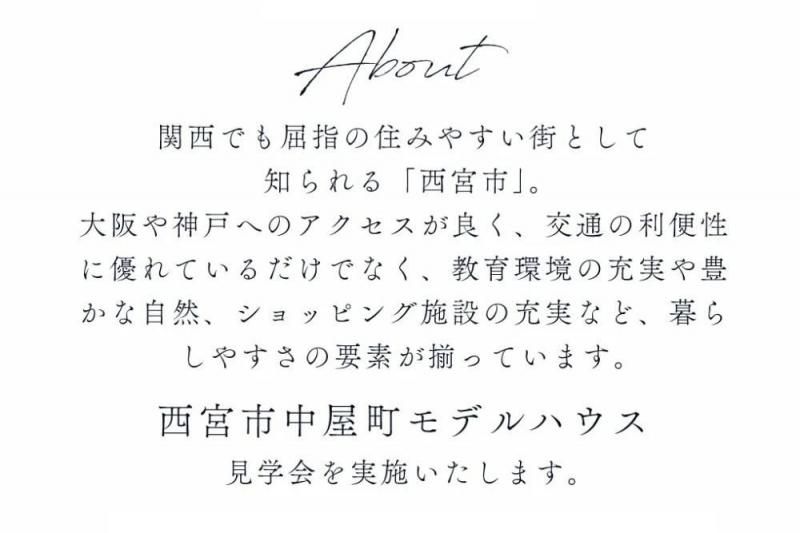 About
関西でも屈指の住みやすい街として
知られる「西宮市」。
大阪や神戸へのアクセスが良く、交通の利便性
に優れているだけでなく、教育環境の充実や豊
かな自然、ショッピング施設の充実など、暮ら
しやすさの要素が揃っています。
西宮市中屋町モデルハウス
見学会を実施いたします。